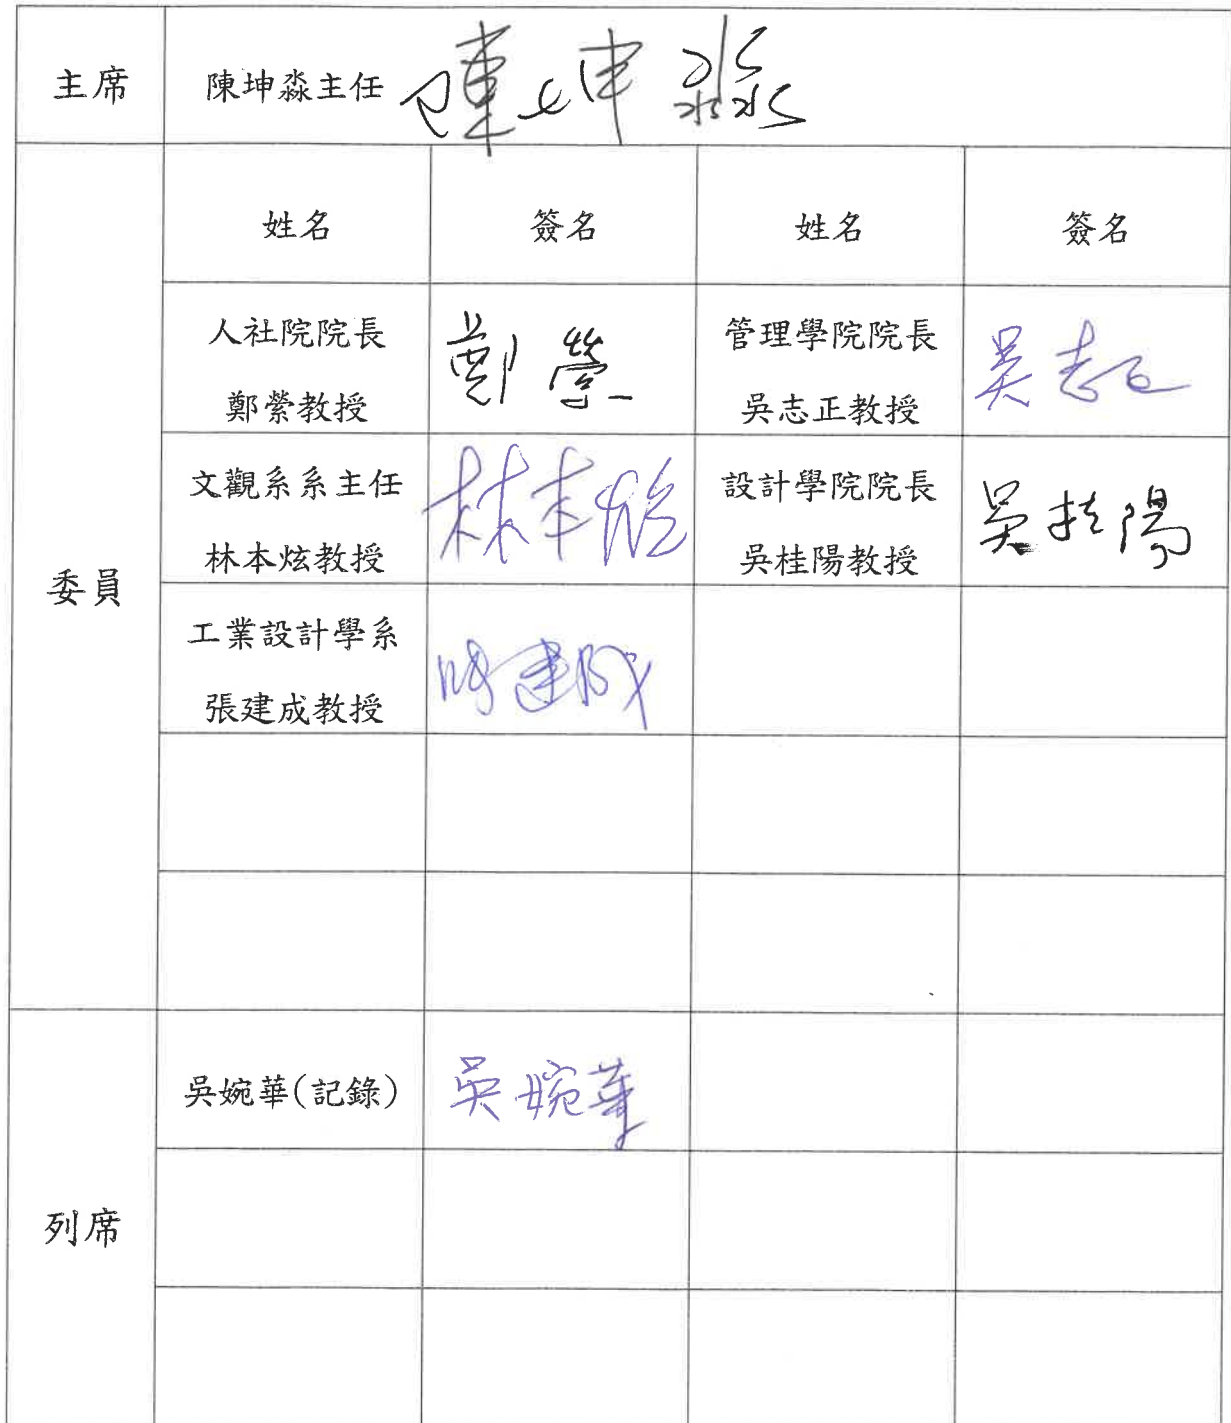 主席
陳坤淼主任 陳坤淼
委員
姓名 簽名 姓名 簽名
人社院院長
鄭縈教授
鄭縈
管理學院院長
吳志正教授
吳志正
文觀系系主任
林本炫教授
林本炫
設計學院院長
吳桂陽教授
吳桂陽
工業設計學系
張建成教授
張建成
列席
吳婉華(記錄) 吳婉華